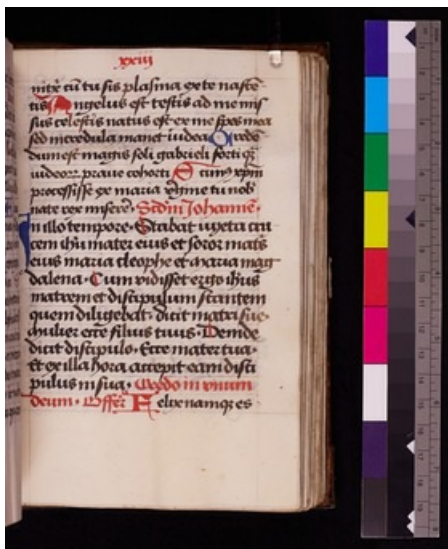 xxiij
mirẽ cũ tu sis plasma ex te nascẽ
tis Angelus est testis ad me mis
sus celestis natus est ex me spes mea
sed incredula manet iudea Crede
dum est magis soli gabrieli forti q̃
iudeo praue cohorti Scim9 xp̃m
processisse ex maria v̾gine tu nob
nate rex miserẽ. Scdm̃ Johannẽ.
In illo tempore. Stabat iuxta cru
cem ih̃u mater eius et soror mat̾s
eius maria cleophe et maria mag
dalena. Cum vidisset ergo ih̃us
matrem et discipulum stantem
quem diligebat. dicit matri sue.
mulier ecce filius tuus. Deinde
dicit discipulo. Ecce mater tua.
Et ex illa hora accepit eam disci
pulus in sua. Credo in vnum
deum. Offer̃ Felix namq̾ es